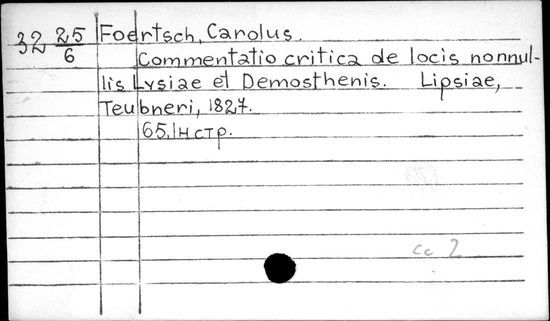 32 25/6 Foertsch, Carolus.
Commentatio critica de locis nonnul-
lis Lysiae et Demosthenis. Lipsiae,
Teubneri, 1827.
65, 1н стр.
Cc 2